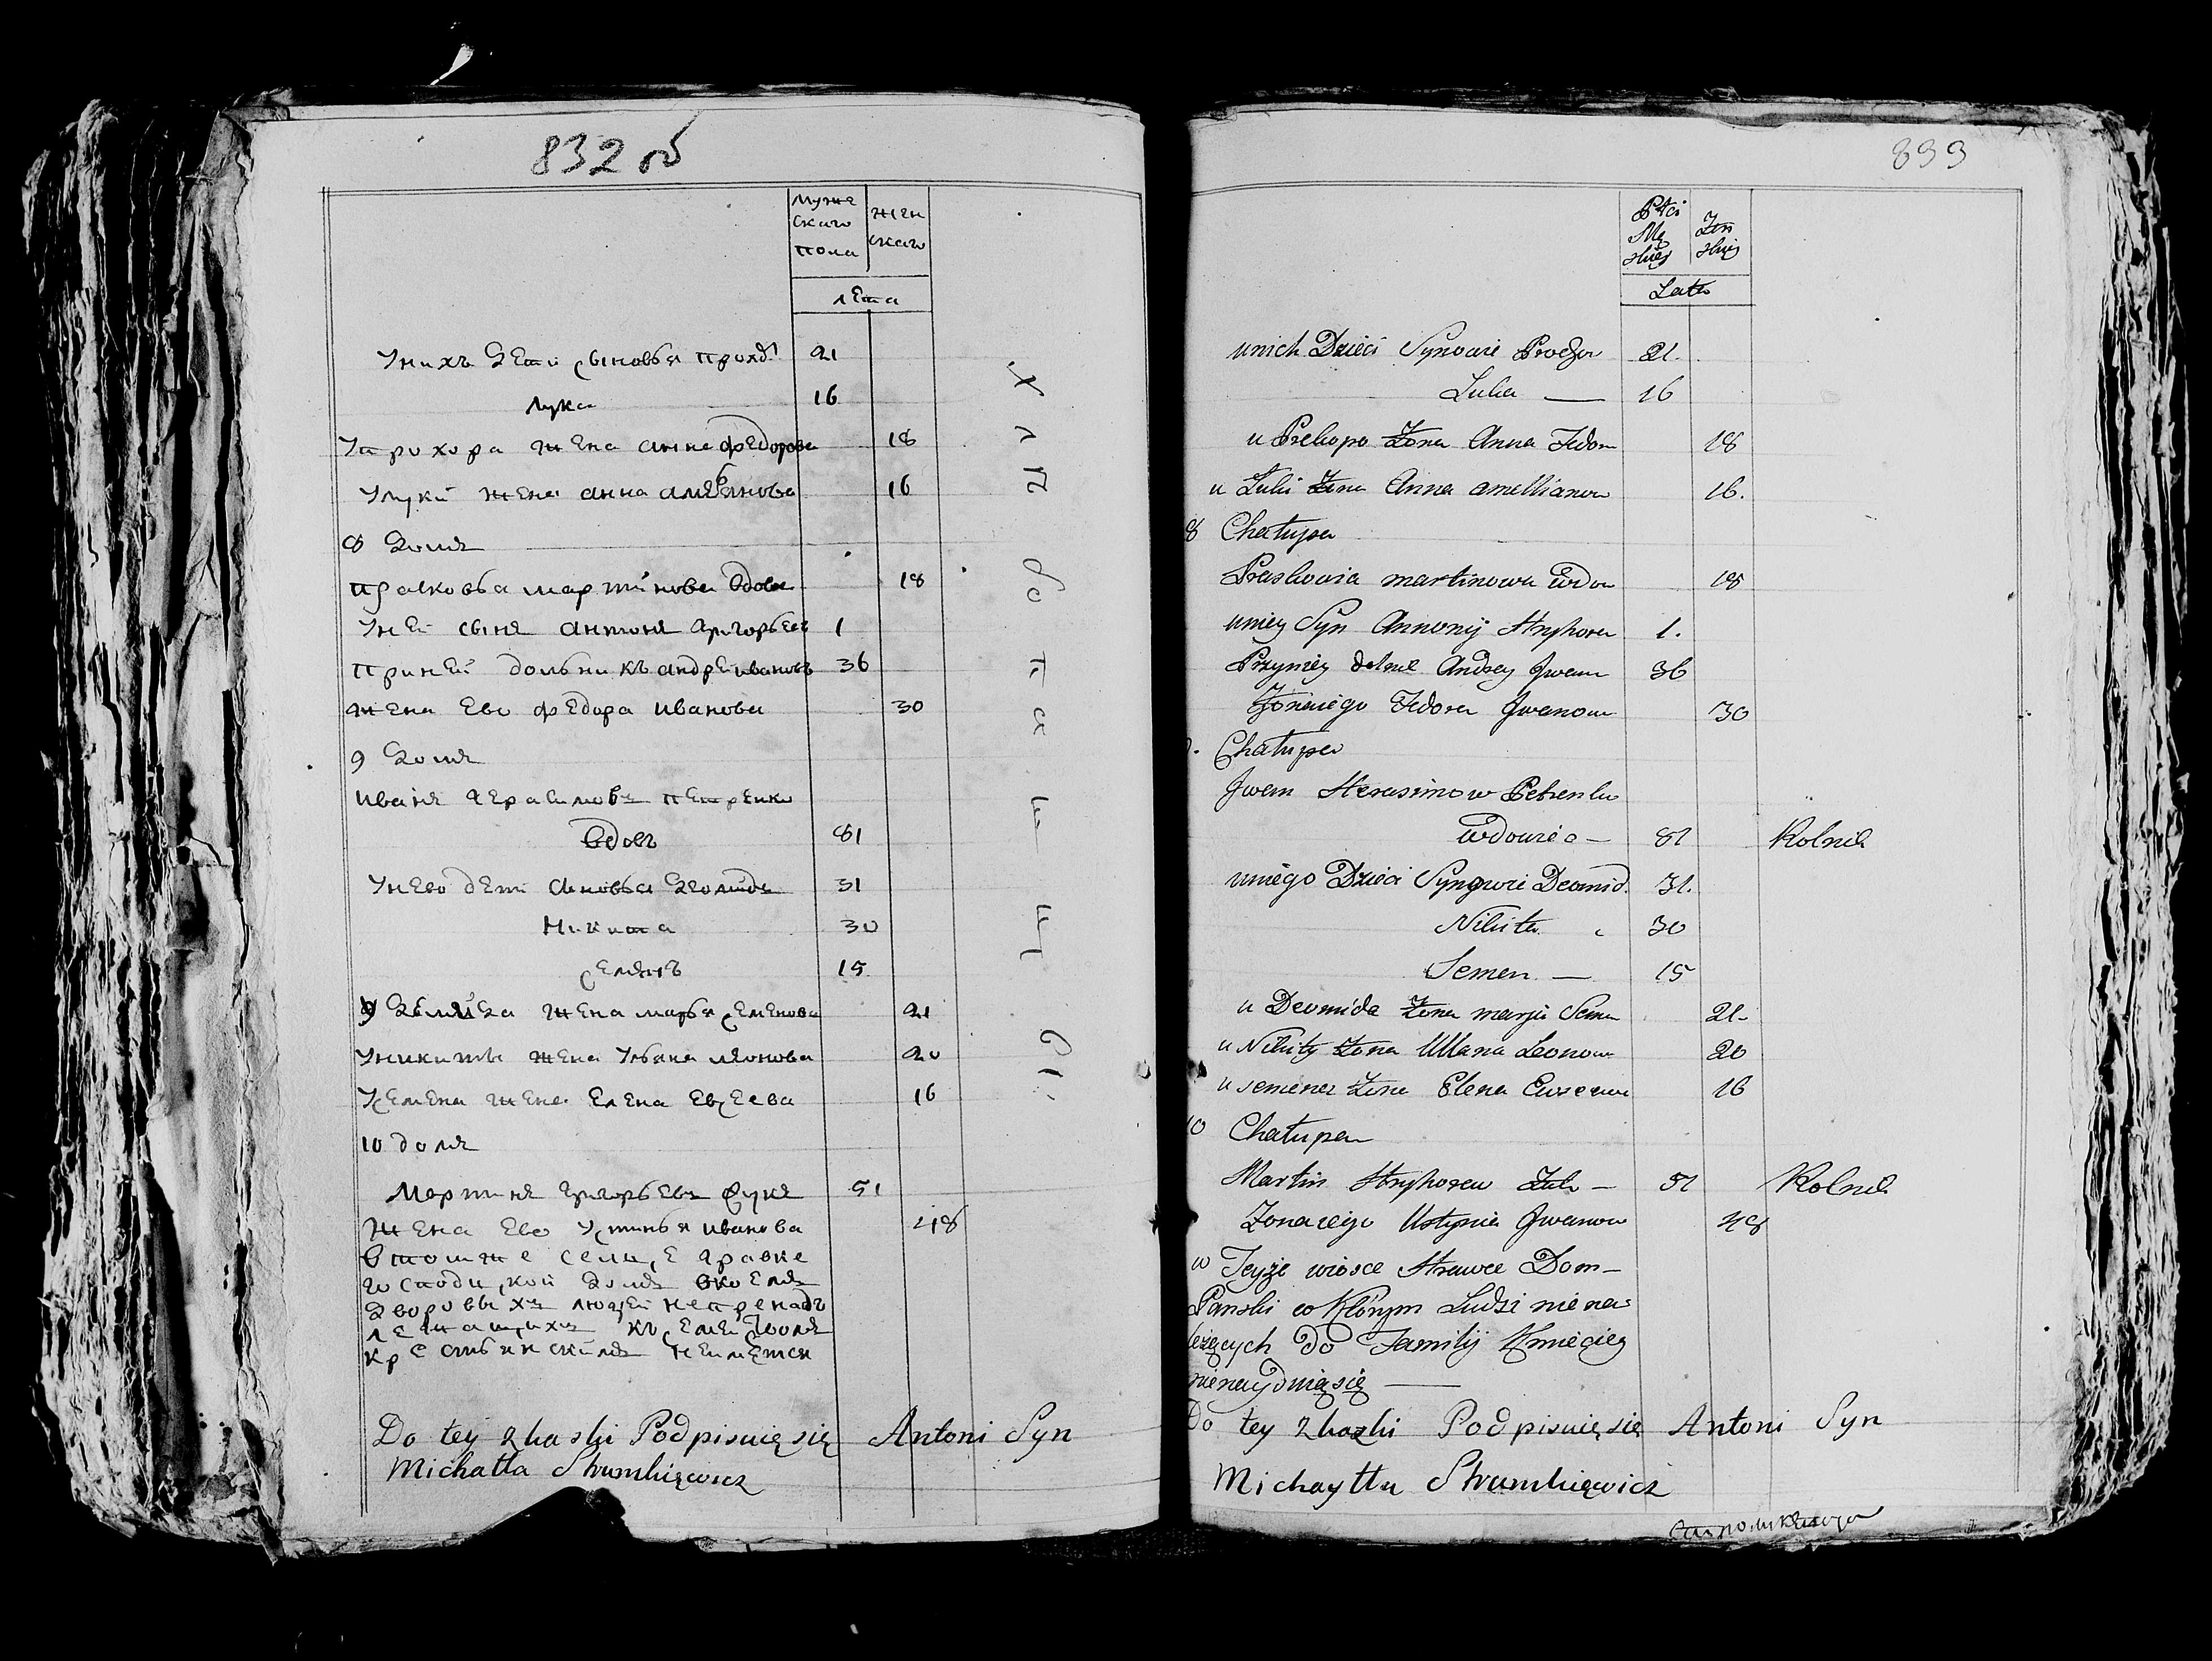 832 об
Муже
скаго
пола
жен
скаго
лета
Унихъ дети сыновья прохо 21
лука 16
Упрохора жена анна федорова 18
Улуки жена анна амельянова 16
8 домъ
прасковья мартинова вдова 18
Уней сынъ антонъ григорьевъ 1
приней дольникъ андрей ивановъ 36
жена ево федора иванова 30
9 домъ
иванъ герасимовъ петренко
вдовъ 81
Унево дети сыновья деомидъ 31
Никита 30
семенъ 15
У деомида жена марья семенова 21
Уникиты жена Ульяна леонова 20
Усемена жена Елена Евсеева 16
10 домъ
Мартинъ григорьевъ 51
Жена Ево Устинья иванова 48
втомже селце гравке
господцкой домъ вкоемъ
дворовыхъ людей непренадъ
лежащихъ къ семействомъ
крестьянскимъ неимется
Do tey Skaski Podpisuię się Antoni Syn
Michałła Strumkięwicz
833
Płci
Mę
skiey
Żeń
skiey
Lata
unich Dzieci Synowie Prochor 21.
Łuka — 16
u Prohopa Żona Anna Fedor 18
u Łuki Żona Anna amellianow 16.
8 Chałupa
Praskowia martinowa wdow 18
unięy Syn Antonij Hryhorew 1.
Przynięy dolnik Andrey Jwan 36
Żonaiego Fedora Jwanow 30
9. Chałupa
Jwan Herasimow Petrenko
wdowiec — 81 Rolnik
uniego Dzieci Synowie Deomid. 31.
Nikita 30
Semen — 15
u Deomida Żona marja Seme 21.
u Nikity żona Ullana Leonow 20
u semena Żona Elena Ewseewa 16
10 Chałupa
Martin Hryhorew — 51 Rolnik
Żonaiego Ustynia Jwanow 48
w Teyże wiosce Hrawce Dom
Panski w Którym Ludzi niena
leżących do Familij Kmięcięy
nienaydnią się —
Do tey Skazki Podpisuię się Antoni Syn
Michayłła Strumkięwicz